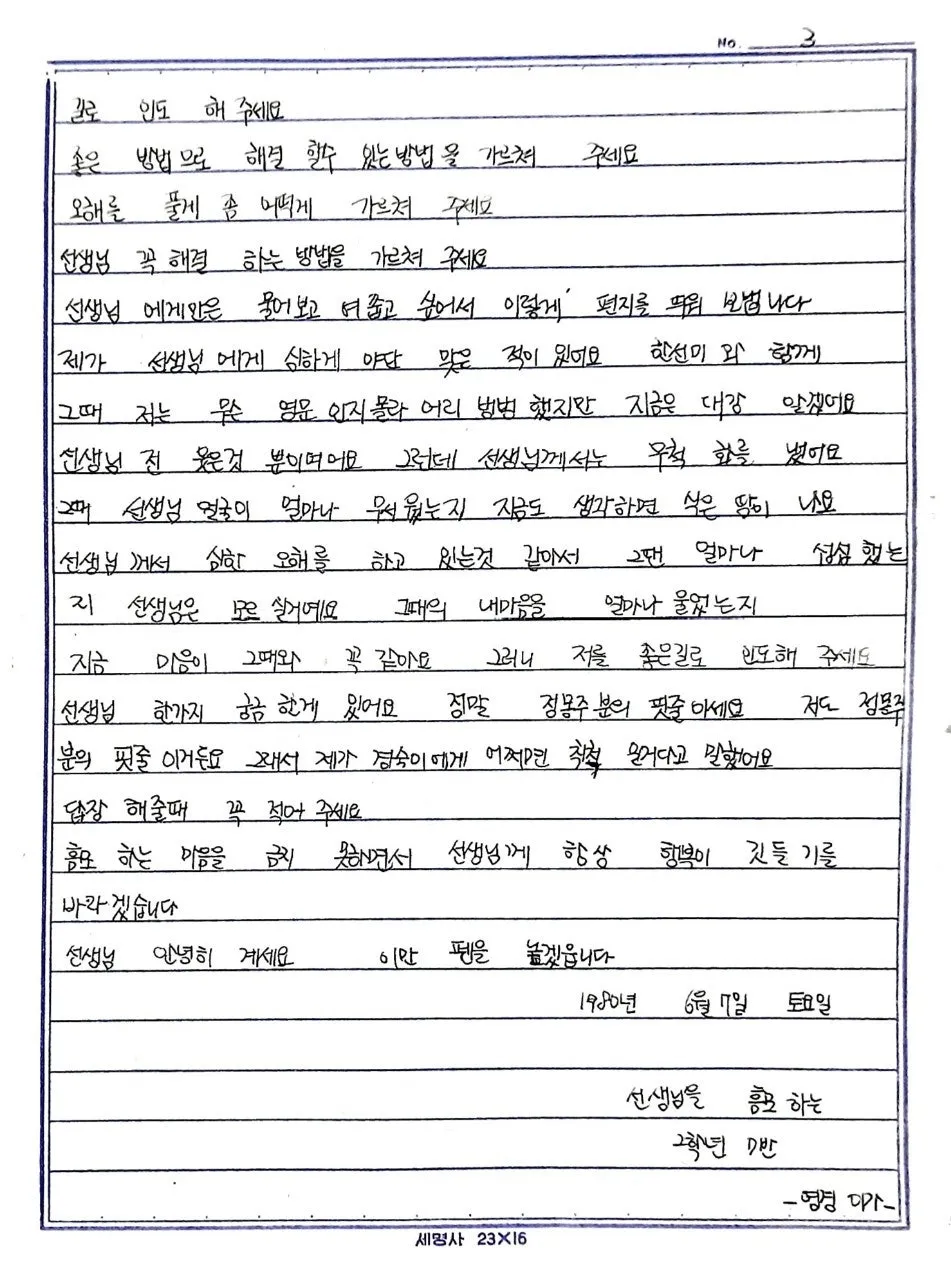 No. 3
길로 인도 해 주세요
좋은 방법으로 해결 할수 있는방법을 가르쳐 주세요
오해를 풀게 좀 어떡게 가르쳐 주세요
선생님 꼭 해결 하는 방법을 가르쳐 주세요
선생님 에게만은 물어보고 여쭙고 싶어서 이렇게 편지를 띄워 보냅니다
제가 선생님 에게 심하게 야단 맞은 적이 있어요 한선미 와 함께
그때 저는 무슨 영문 인지몰라 어리 벙벙 했지만 지금은 대강 알겠어요
선생님 전 웃은것 뿐이며어요 그런데 선생님께서는 무척 화를 냈어요
그때 선생님 얼굴이 얼마나 무서웠는지 지금도 생각하면 식은 땀이 나요
선생님 께서 심한 오해를 하고 있는것 같아서 그땐 얼마나 섭섭 했는
지 선생님은 모르실거예요 그때의 내마음을 얼마나 울었는지
지금 마음이 그때와 꼭 같아요 그러니 저를 좋은길로 인도해 주세요
선생님 한가지 궁금 한게 있어요 정말 정몽주분의 핏줄 이세요 저도 정몽주
분의 핏줄 이거든요 그래서 제가 경숙이에게 어쩌면 친척 일거다고 말했어요
답장 해줄때 꼭 적어 주세요
흠모 하는 마음을 금치 못하면서 선생님께 항상 행복이 깃들 기를
바라겠습니다
선생님 안녕히 계세요 이만 펜을 놓겠읍니다
1980년 6월 7일 토요일
선생님을 흠모 하는
2학년 7반
세명사 23X16